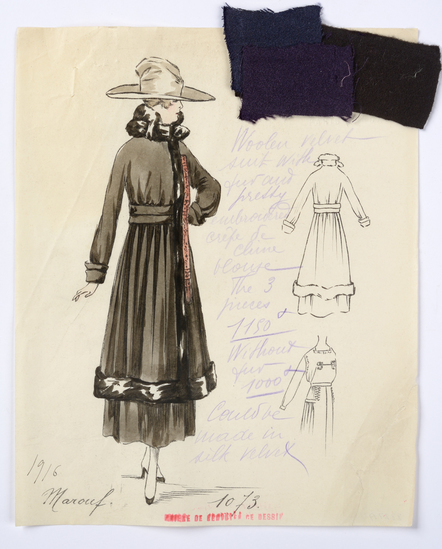 Woolen velvet
suit with
fur and
pretty
embroidered
crêpe de
chine
blouse
The 3
pieces
1150
Without
fur
1000
Could be
made in
silk velvet
1916
Marouf.
1073.
DE